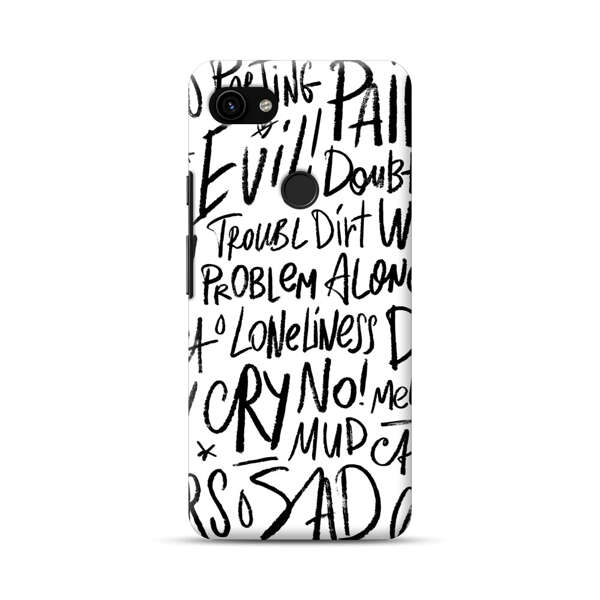 PORTING PAI
EVIL! DOUBT
TROUBL DIRT W
PROBLEM ALON
A LONELINESS D
CRY NO! Me
MUD CA
RS SAD